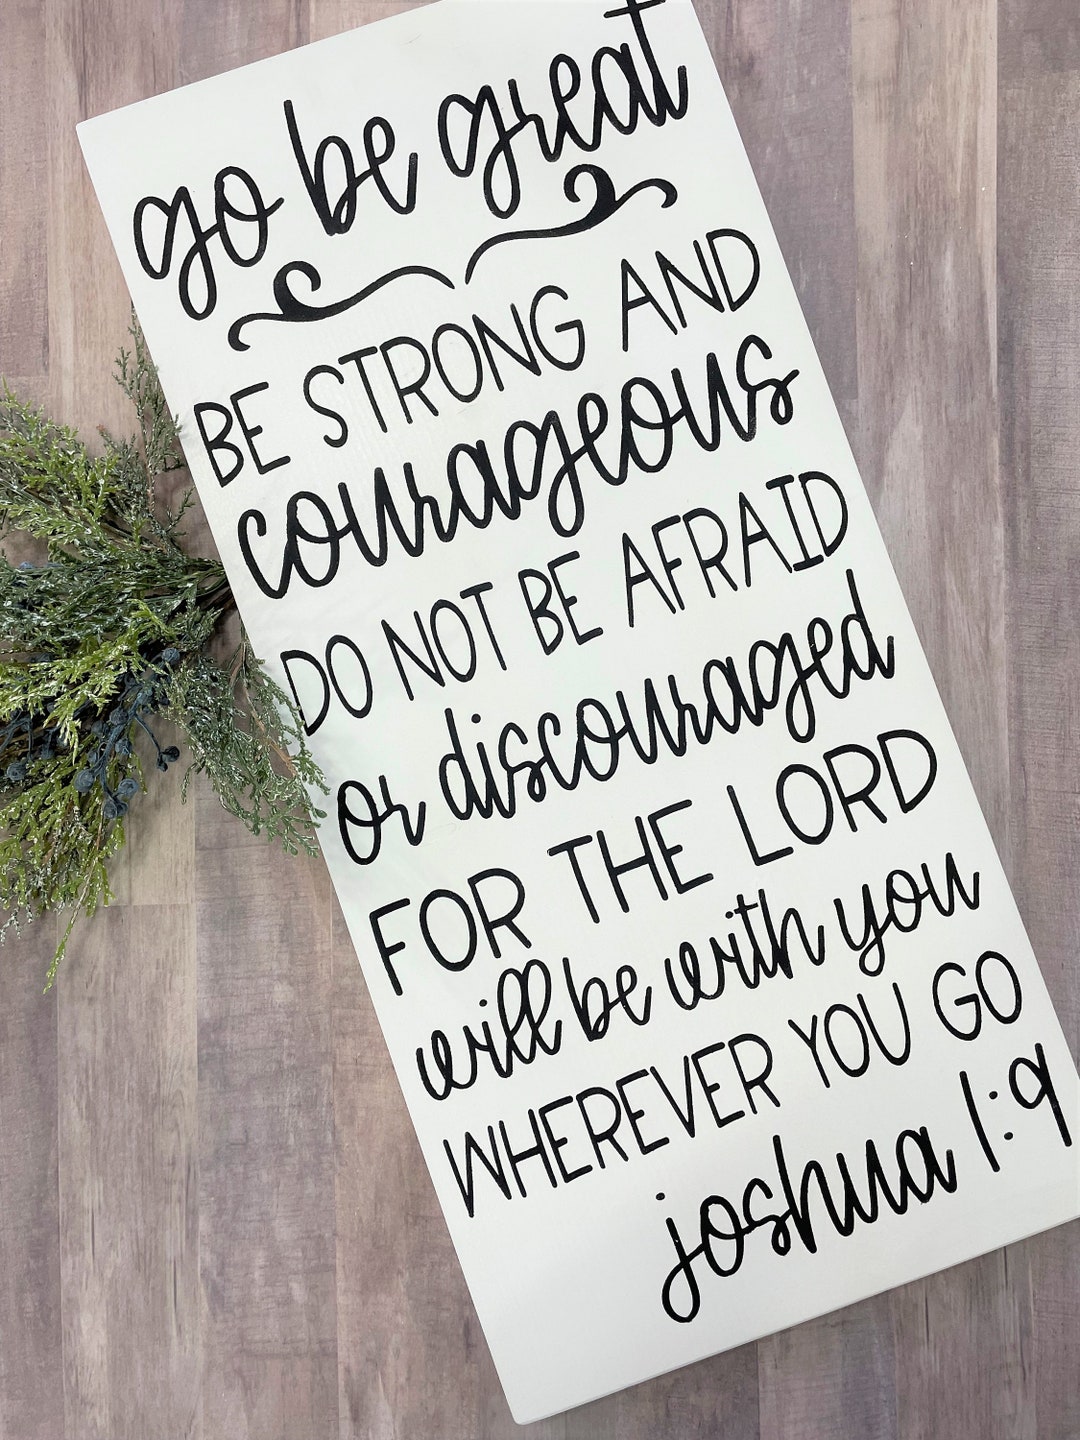 go be great
BE STRONG AND
courageous
DO NOT BE AFRAID
or discouraged
FOR THE LORD
will be with you
WHEREVER YOU GO
joshua 1:9